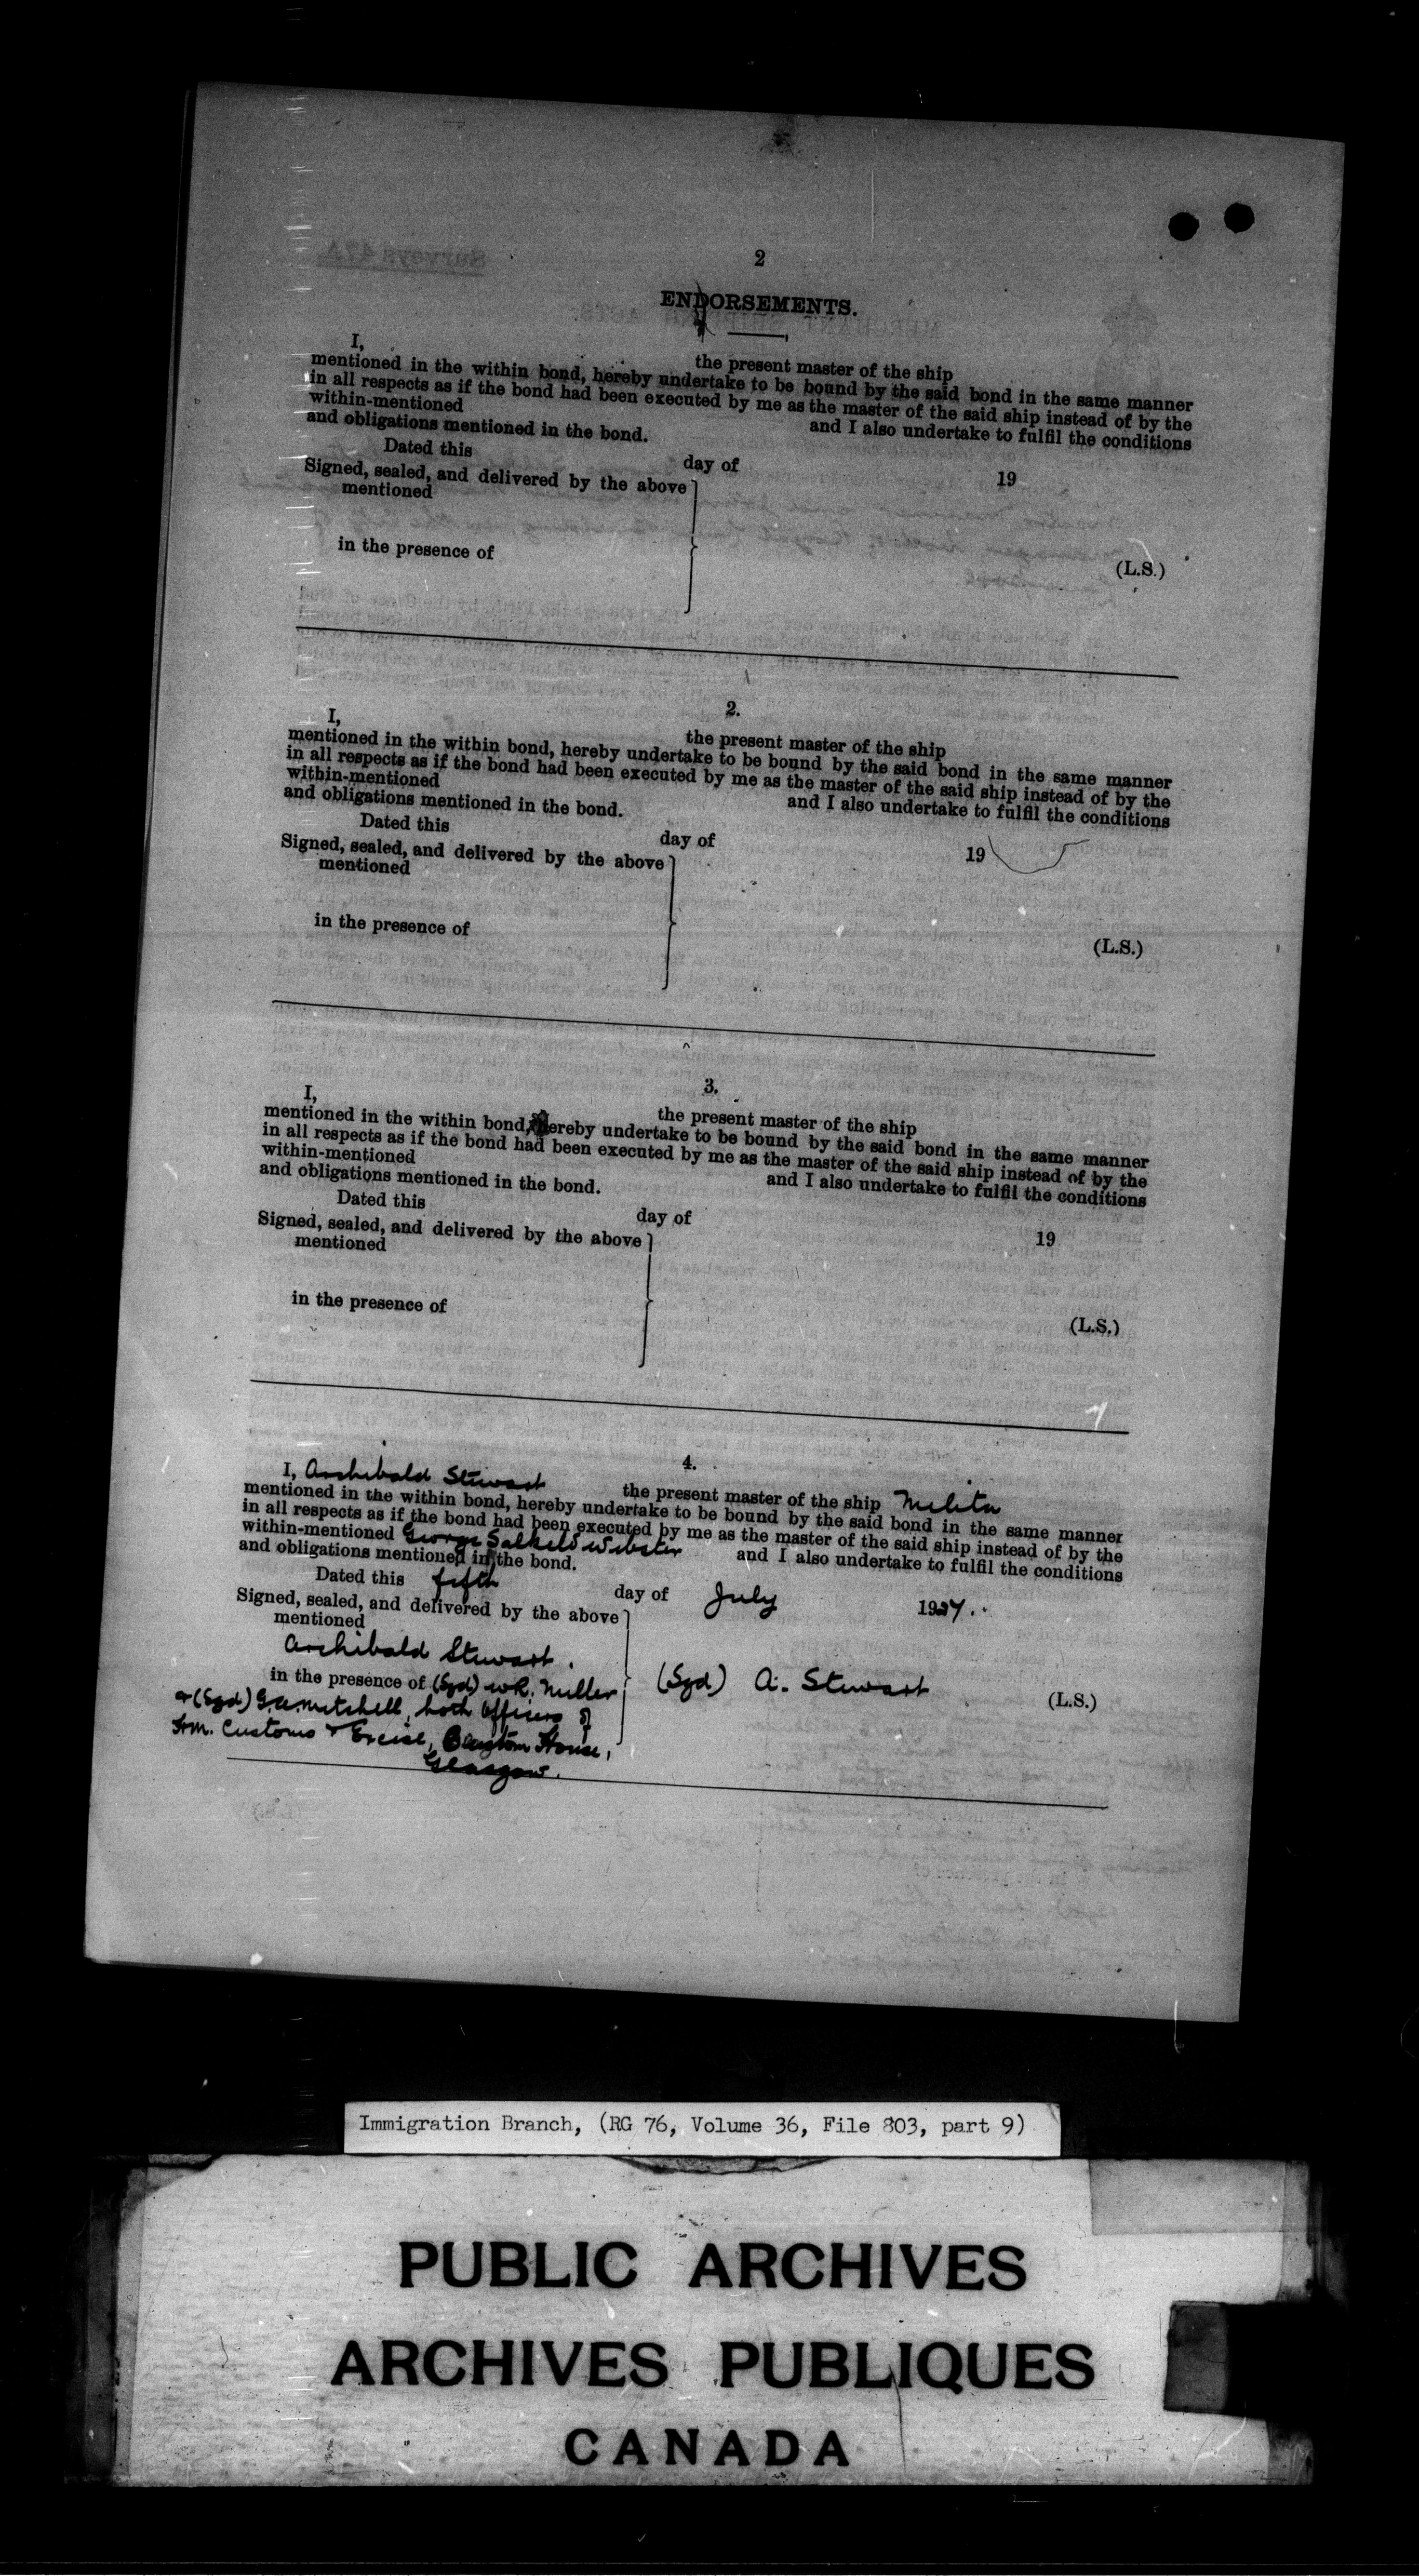 2
ENDORSEMENTS.
I, the present master of the ship
mentioned in the within bond, hereby undertake to be bound by the said bond in the same manner
in all respects as if the bond had been executed by me as the master of the said ship instead of by the
within-mentioned and I also undertake to fulfil the conditions
and obligations mentioned in the bond.
Dated this day of 19
Signed, sealed, and delivered by the above
mentioned
in the presence of
(L.S.)
2.
I, the present master of the ship
mentioned in the within bond, hereby undertake to be bound by the said bond in the same manner
in all respects as if the bond had been executed by me as the master of the said ship instead of by the
within-mentioned and I also undertake to fulfil the conditions
and obligations mentioned in the bond.
Dated this day of 19
Signed, sealed, and delivered by the above
mentioned
in the presence of
(L.S.)
3.
I, the present master of the ship
mentioned in the within bond, hereby undertake to be bound by the said bond in the same manner
in all respects as if the bond had been executed by me as the master of the said ship instead of by the
within-mentioned and I also undertake to fulfil the conditions
and obligations mentioned in the bond.
Dated this day of 19
Signed, sealed, and delivered by the above
mentioned
in the presence of
(L.S.)
4.
I, Archibald Stewart the present master of the ship Melita
mentioned in the within bond, hereby undertake to be bound by the said bond in the same manner
in all respects as if the bond had been executed by me as the master of the said ship instead of by the
within-mentioned George Salkeld Webster and I also undertake to fulfil the conditions
and obligations mentioned in the bond.
Dated this fifth day of July 1927.
Signed, sealed, and delivered by the above
mentioned
Archibald Stewart.
in the presence of (Sgd) W.R. Miller
(Sgd) A. Stewart (L.S.)
& (Sgd) Mitchell, both Officers of
H.M. Customs & Excise, Custom House,
Glasgow.
Immigration Branch, (RG 76, Volume 36, File 803, part 9)
PUBLIC ARCHIVES
ARCHIVES PUBLIQUES
CANADA